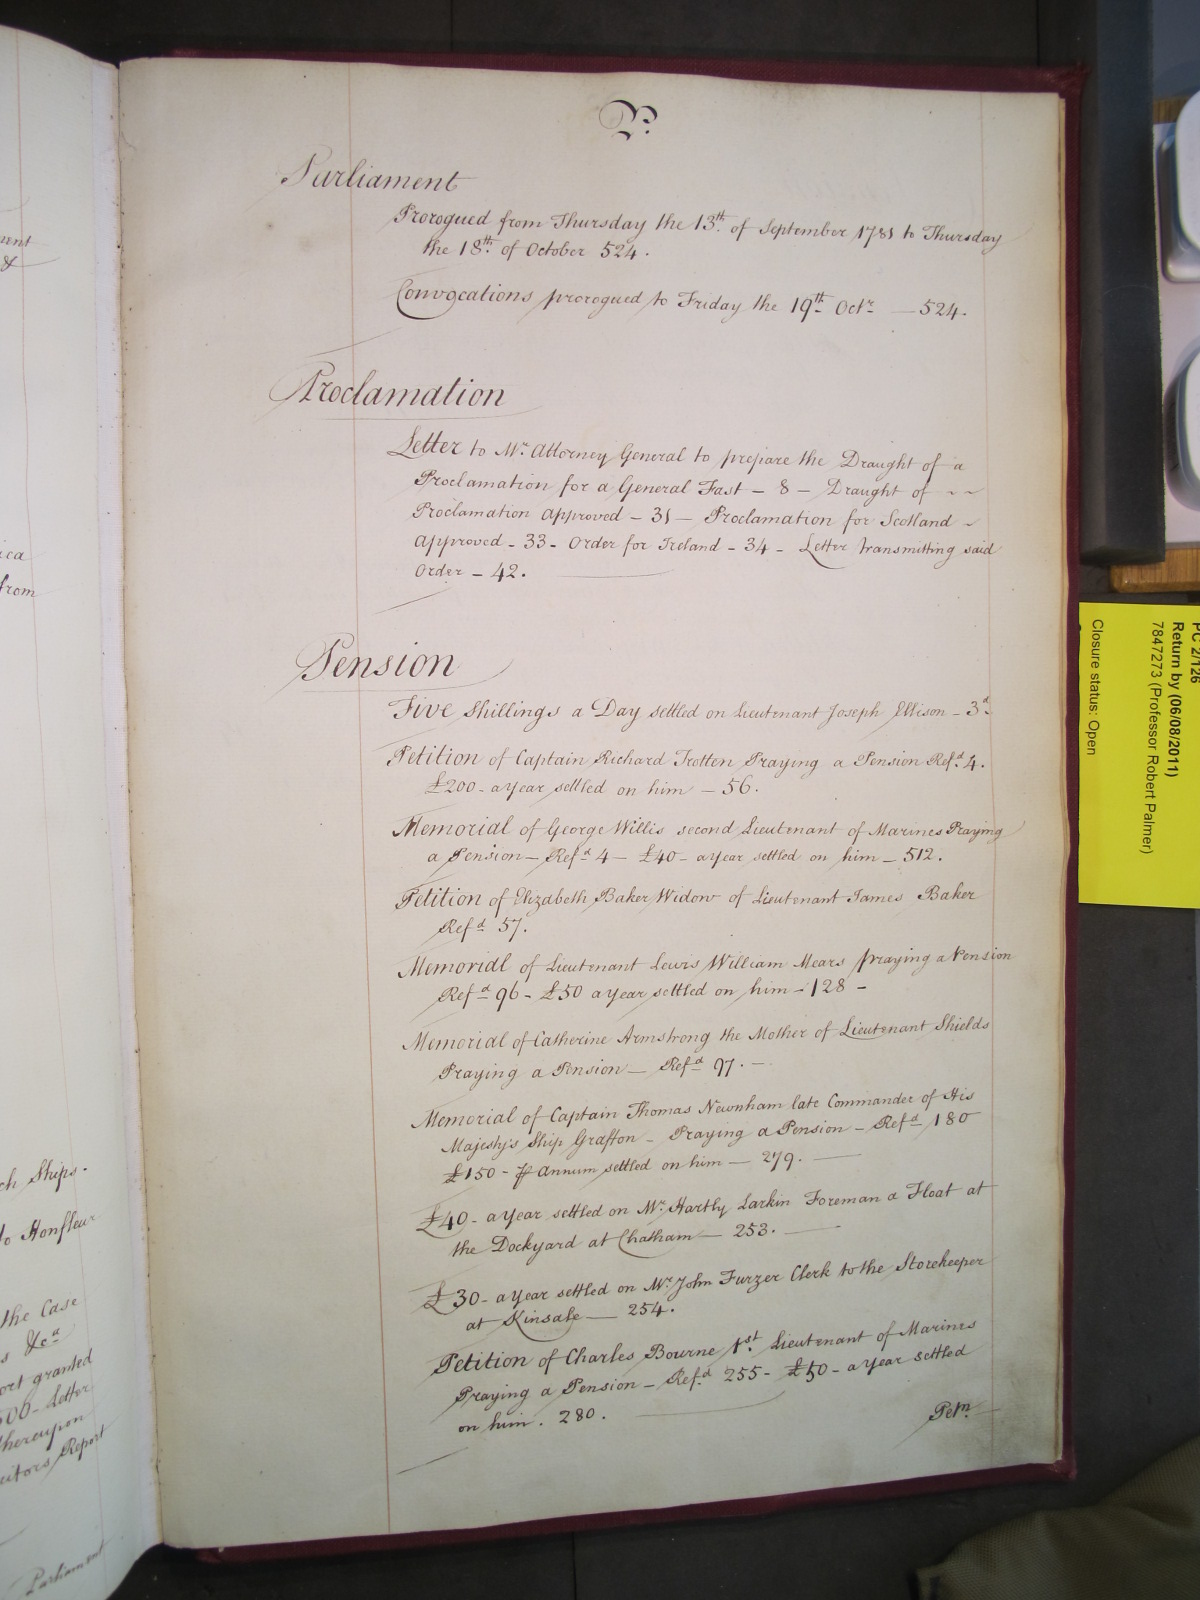 P.
Parliament
Prorogued from Thursday the 13th. of September 1781 to Thursday
the 18th. of October 524.
Convocations prorogued to Friday the 19th Octr. — 524.
Proclamation
Letter to Mr. Attorney General to prepare the Draught of a
Proclamation for a General Fast - 8 - Draught of
Proclamation approved - 31 - Proclamation for Scotland
approved - 33 - Order for Ireland - 34 - Letter transmitting said
Order - 42.
Pension
Five Shillings a Day settled on Lieutenant Joseph Ellison - 3d.
Petition of Captain Richard Trotten Praying a Pension Refd. 4.
£200 - a year settled on him - 56.
Memorial of George Willis second Lieutenant of Marines Praying
a Pension - Refd 4 - £40 - a year settled on him - 512.
Petition of Elizabeth Baker Widow of Lieutenant James Baker
Refd 57.
Memorial of Lieutenant Lewis William Mears praying a Pension
Refd 96 - £50 a year settled on him - 128 -
Memorial of Catherine Armstrong the Mother of Lieutenant Shields
Praying a Pension — Refd 97. -
Memorial of Captain Thomas Newnham late Commander of His
Majesty's Ship Grafton - Praying a Pension - Refd 180
£150 - p Annum settled on him — 279.
£40 - a year settled on Mr. Hartly Larkin Foreman a Float at
the Dockyard at Chatham — 253.
£30 - a year settled on Mr. John Furzer Clerk to the Storekeeper
at Kinsale — 254.
Petition of Charles Bourne 1st. Lieutenant of Marines
Praying a Pension - Refd. 255 - £50 - a year settled
on him. 280.
Petn.
ment
&
ica
from
ch Ships.
to Honfleur
the Case
s &ca
ort granted
500 - Letter
thereupon
citors Report
Parliament
PC 2/126
Return by (06/08/2011)
7847273 (Professor Robert Palmer)
Closure status: Open